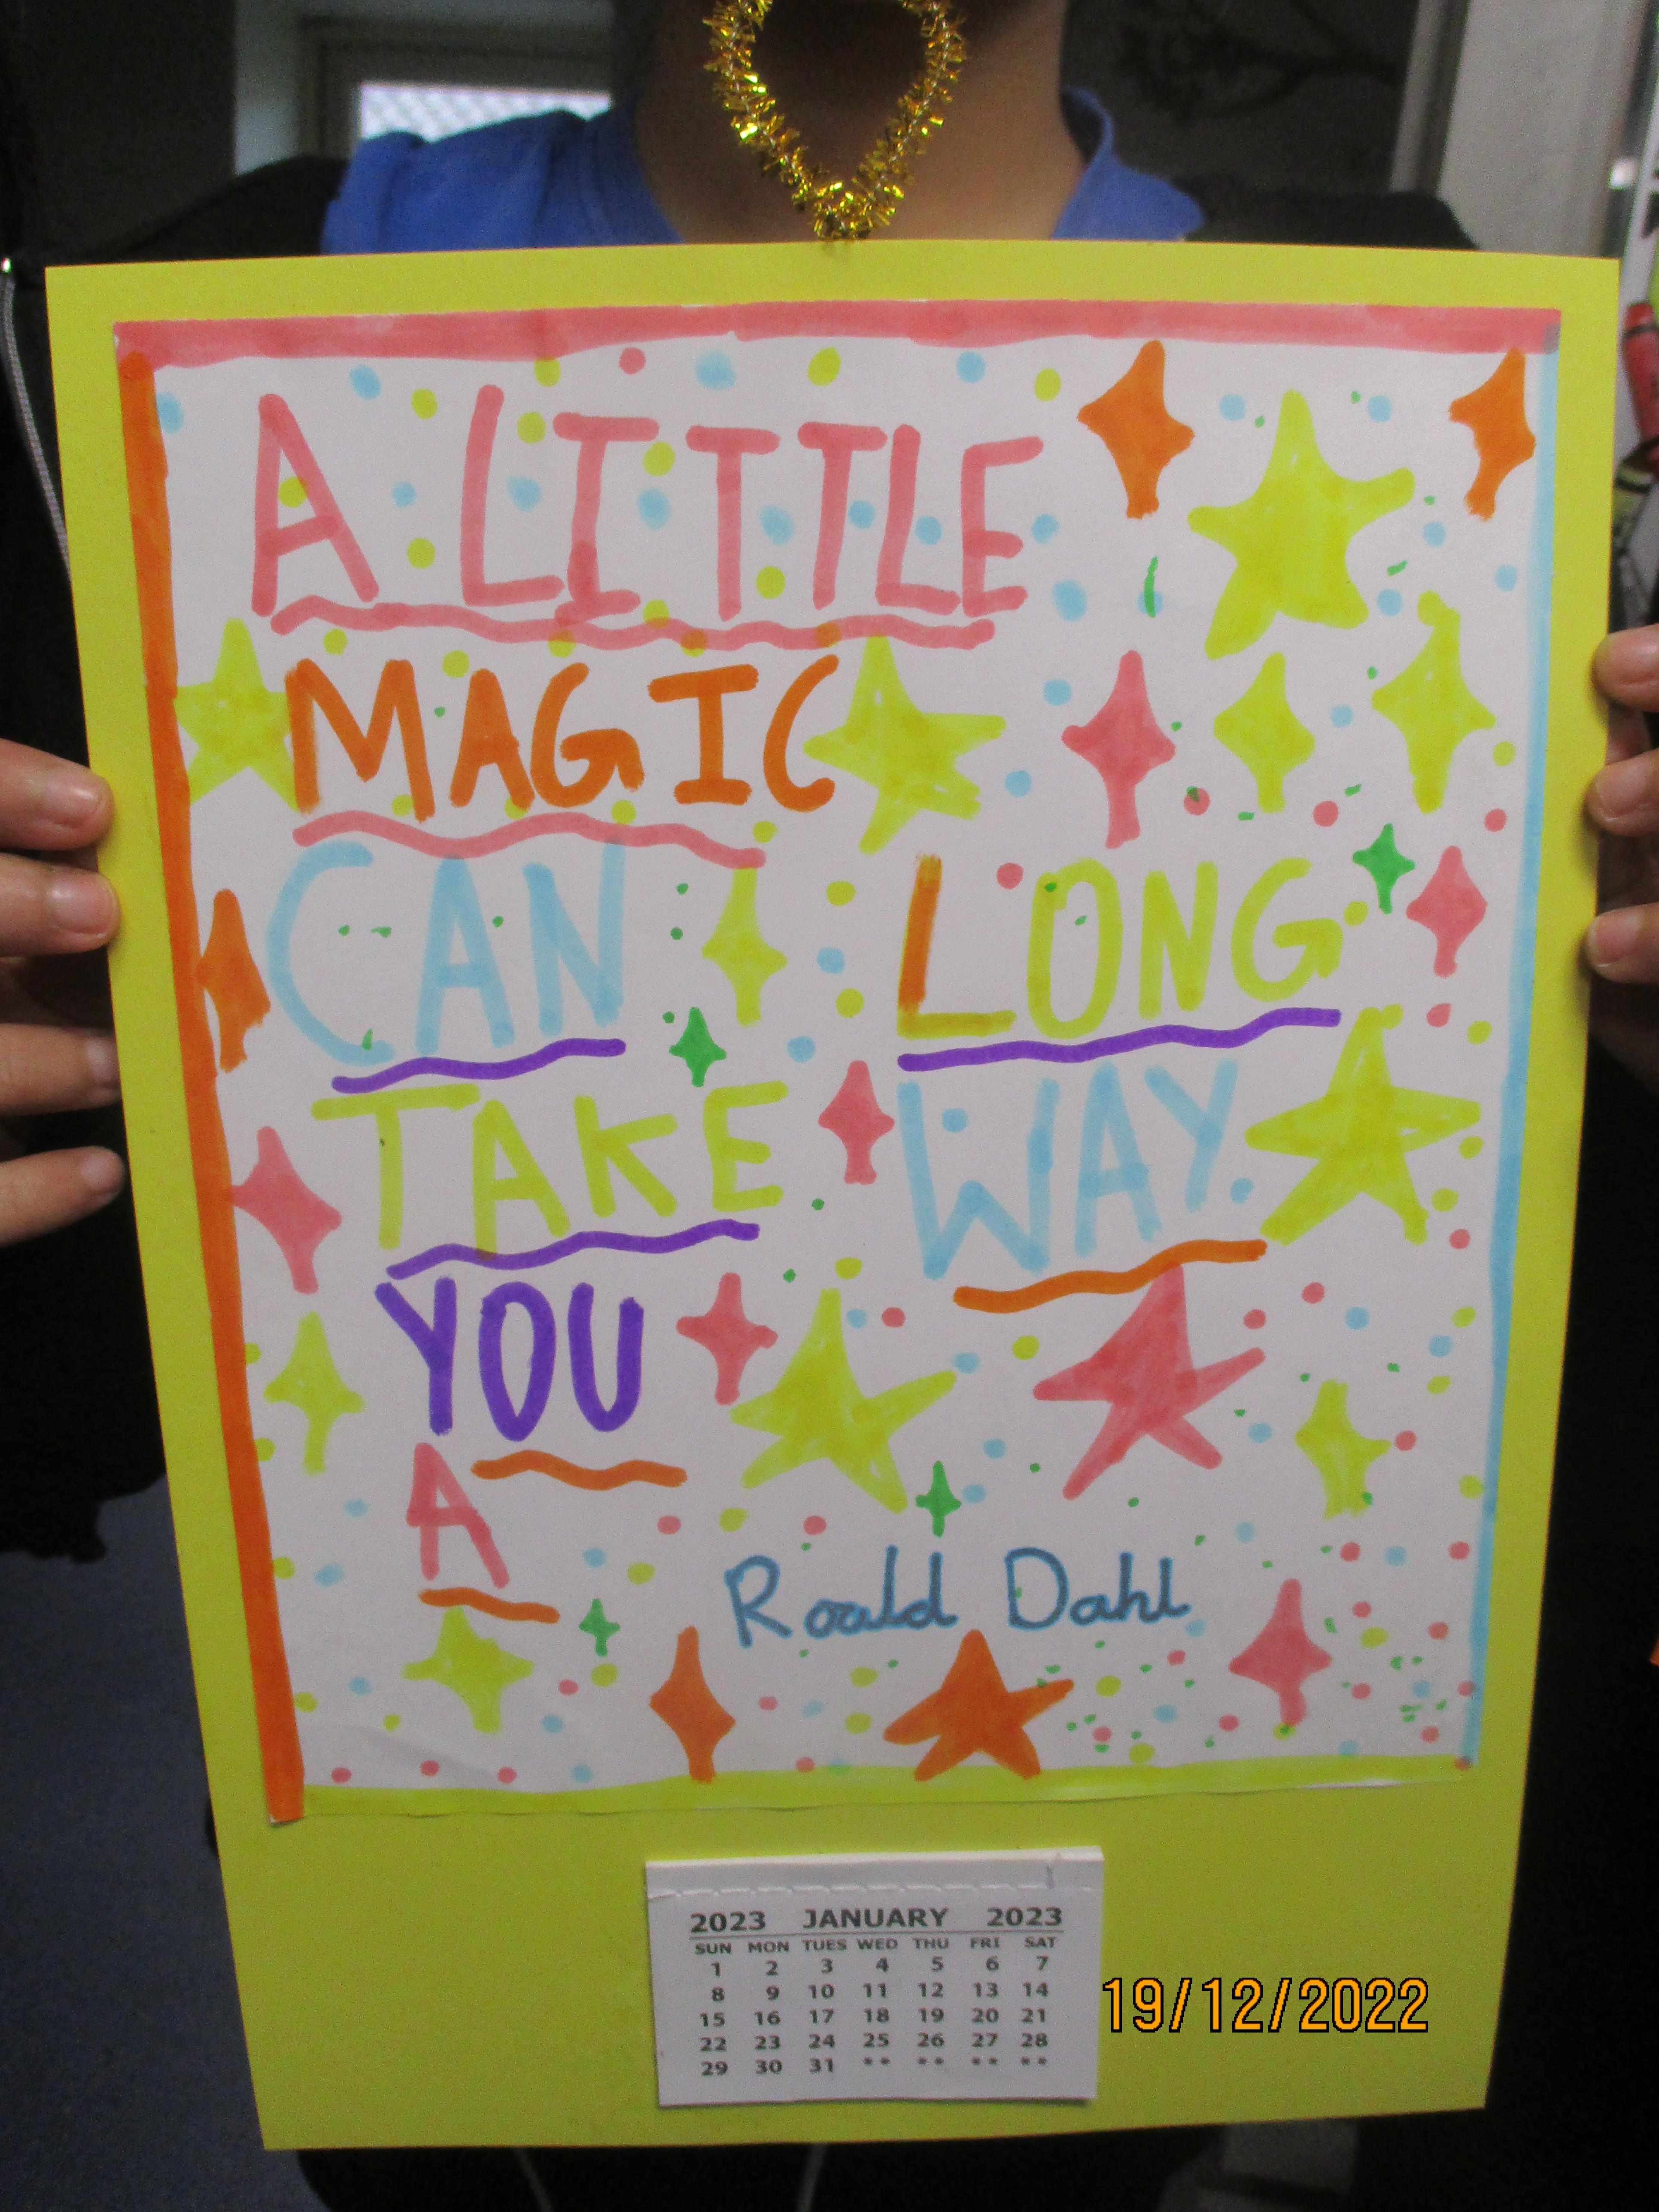 A LITTLE
MAGIC
CAN
TAKE
YOU
A
LONG
WAY.
Roald Dahl
2023 JANUARY 2023
SUN MON TUES WED THU FRI SAT
1 2 3 4 5 6 7
8 9 10 11 12 13 14
15 16 17 18 19 20 21
22 23 24 25 26 27 28
29 30 31 ** ** ** **
19/12/2022